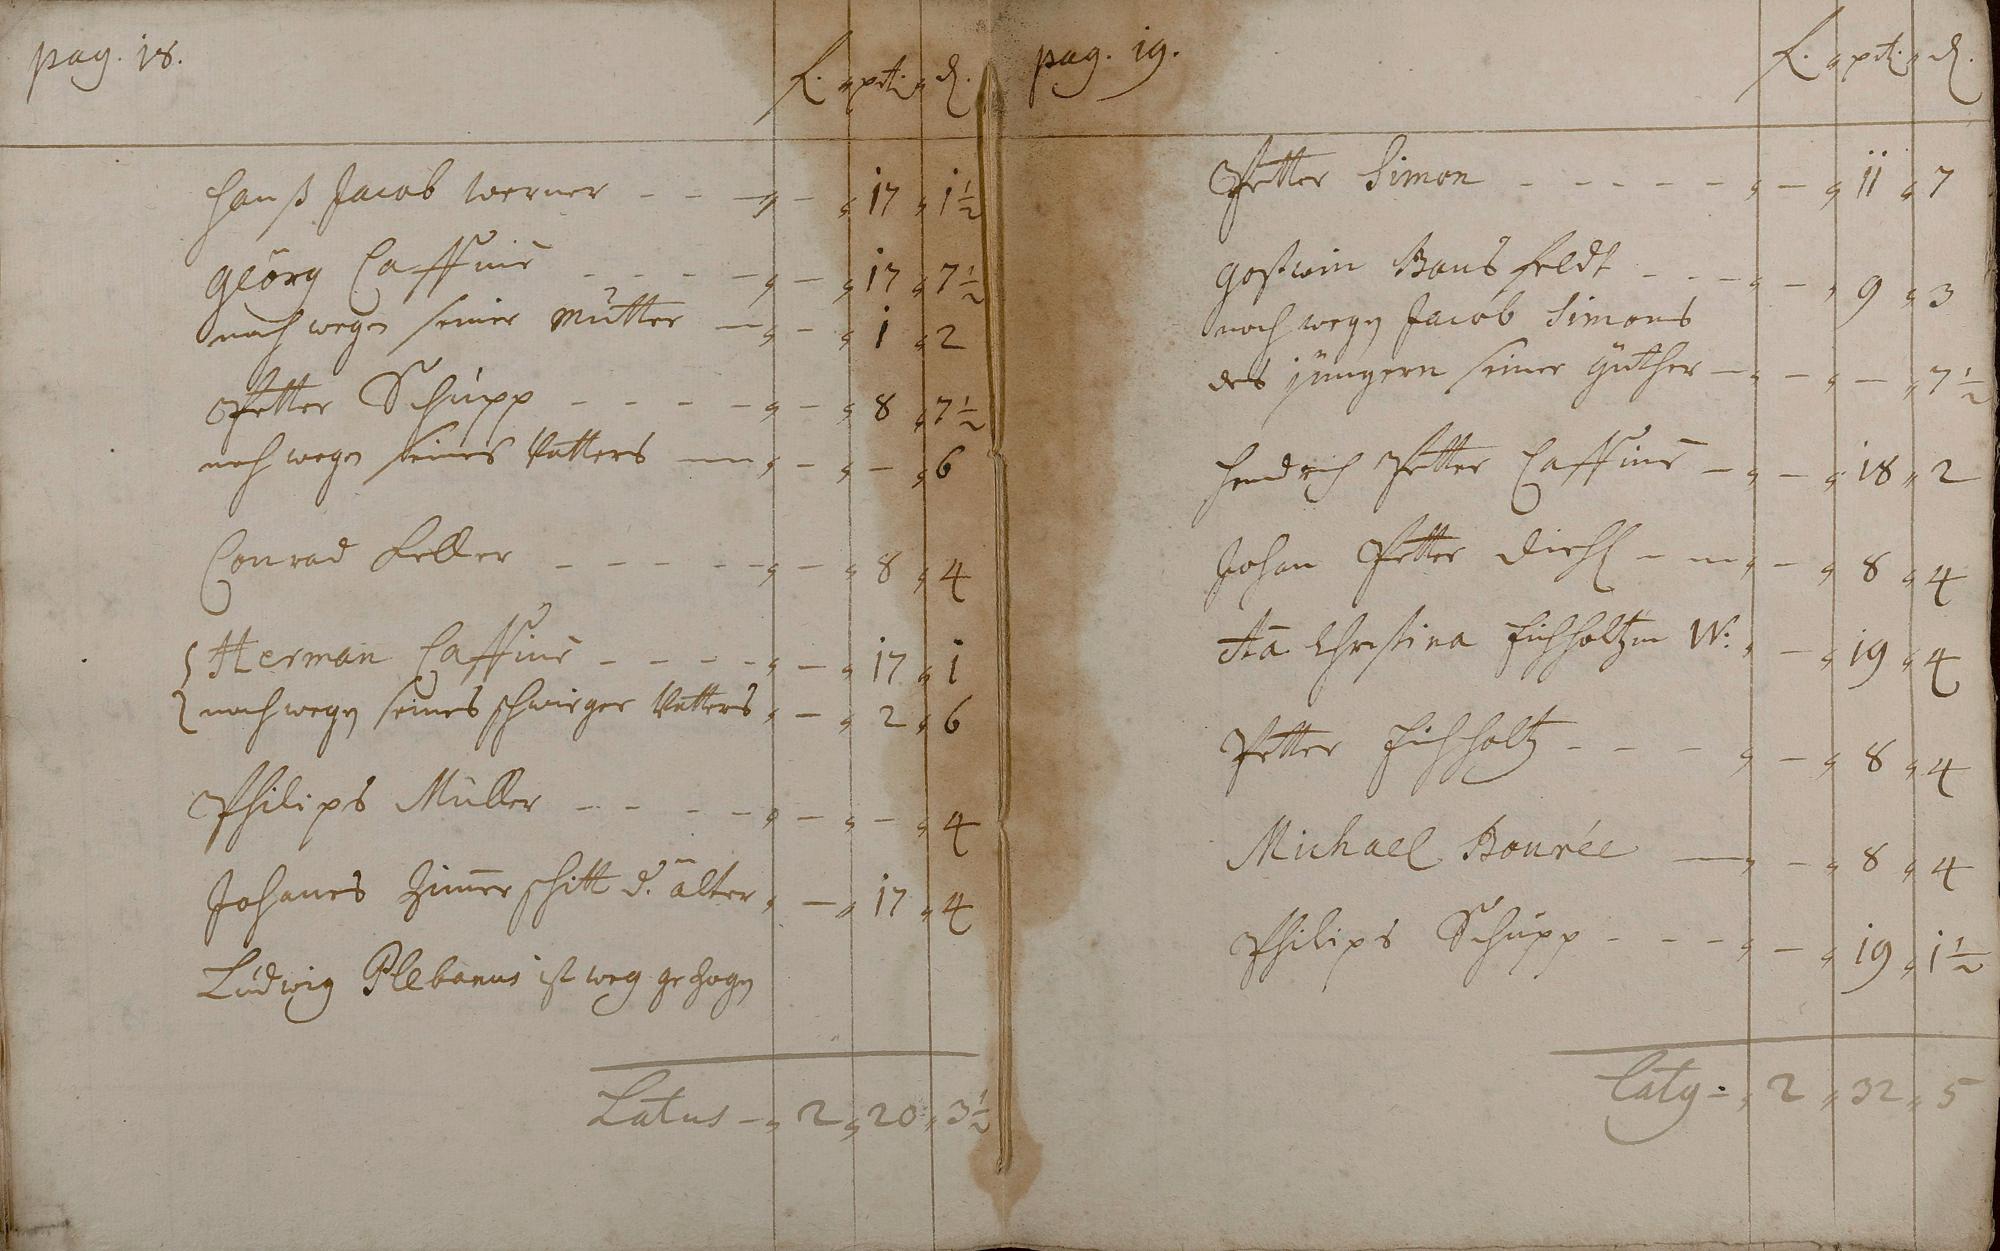 pag. 18.
f. " ptz. " d.
Hanß Jacob Werner - - - " - " 17 " 1 1/2
Georg Cassius - - - - " - " 17 " 7 1/2
noch wegen seiner Mutter - " - " 1 " 2
Petter Schupp - - - - " - " 8 " 7 1/2
noch wegen seines Vatters - " - " - " 6
Conrad Feller - - - - - " - " 8 " 4
Herman Cassius - - - - " - " 17 " 1
noch wegen seines schwieger Vatters " - " 2 " 6
Philips Müller - - - - " - " - " 4
Johanes Zimerschitt d. älter " - " 17 " 4
Ludwig Plebanus ist weg gezogen
Latus - " 2 " 20 " 3 1/2
pag. 19.
f. " ptz. " d.
Petter Simon - - - - - - " - " 11 " 7
Goswin Bausfeldt - - - " - " 9 " 3
noch wegen Jacob Simons
des jüngern seiner güther - " - " - " 7 1/2
Hendrich Petter Cassius - " - " 18 " 2
Johan Petter Diehl - - " - " 8 " 4
Aña Christina Eichholtzin W: " - " 19 " 4
Petter Eichholtz - - - " - " 8 " 4
Michael Bourée - " - " 8 " 4
Philips Schupp - - - " - " 19 " 1 1/2
Latus = " 2 " 32 " 5